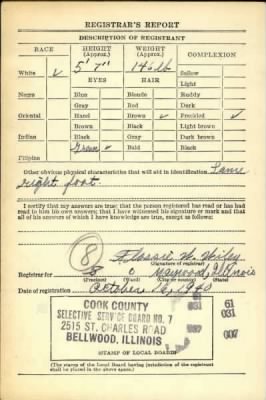 REGISTRAR'S REPORT
DESCRIPTION OF REGISTRANT
RACE
HEIGHT (Approx.)
WEIGHT (Approx.)
COMPLEXION
White ✓
5' 7"
146 lb
Sallow
EYES
HAIR
Light
Negro
Blue
Blonde
Ruddy
Gray
Red
Dark
Oriental
Hazel
Brown ✓
Freckled ✓
Brown
Black
Light brown
Indian
Black
Gray
Dark brown
Green ✓
Bald
Black
Filipino
Other obvious physical characteristics that will aid in identification Lame
right foot.
I certify that my answers are true; that the person registered has read or has had
read to him his own answers; that I have witnessed his signature or mark and that
all of his answers of which I have knowledge are true, except as follows:
8
Flossie W. Wiley
(Signature of registrar)
Registrar for 8 0 Maywood, Illinois
Date of registration October 16, 1940
COOK COUNTY
SELECTIVE SERVICE BOARD NO. 7
2515 ST. CHARLES ROAD
BELLWOOD, ILLINOIS
61
031
031
007
STAMP OF LOCAL BOARD
(The stamp of the Local Board having jurisdiction of the registrant
shall be placed in the above space.)